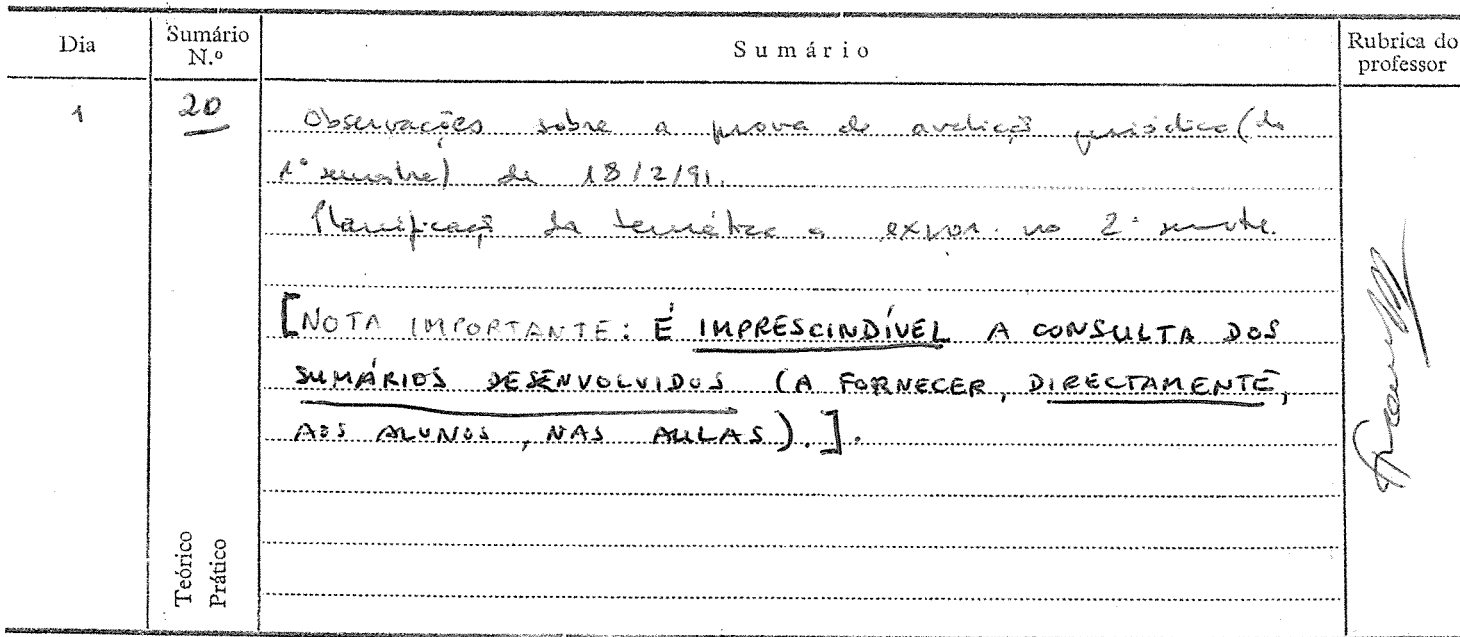 Dia
Sumário N.º
Sumário
Rubrica do professor
1
20
Observações sobre a prova de avaliação periódica (do
1º semestre) de 18/2/91.
Planificação da temática a expor no 2º semestre.
[NOTA IMPORTANTE: É IMPRESCINDÍVEL A CONSULTA DOS
SUMÁRIOS DESENVOLVIDOS (A FORNECER, DIRECTAMENTE,
AOS ALUNOS, NAS AULAS).].
Teórico
Prático